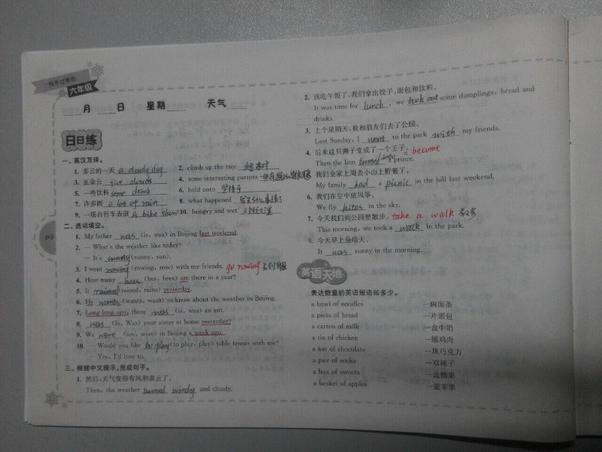 六年级
月 日 星期 天气
日日练
一、英汉互译。
1. 多云的一天 a cloudy day 2. climb up the tree
3. 五朵云 five clouds 4. some interesting parrots
5. 一些饮料 some drink 6. hold onto
7. 许多雨 a lot of rain 8. what happened
9. 一场自行车表演 a bike show 10. hungry and wet
二、选词填空。
1. My father was (is, was) in Beijing last weekend.
2. — What's the weather like today?
— It's sunny (sunny, sun).
3. I went rowing (rowing, row) with my friends. go rowing
4. How many bees (bee, bees) are there in a year?
5. It rained (rained, rains) yesterday.
6. He wants (wants, want) to know about the weather in Beijing.
7. Long long ago, there was (is, was) an ant.
8. Was (Is, Was) your sister at home yesterday?
9. We were (are, were) in Beijing a week ago.
10. — Would you like to play (to play, play) table tennis with me?
Yes, I'd love to.
三、根据中文提示,完成句子。
1. 然后,天气变得有风和多云了。
Then, the weather turned windy and cloudy.
2. 该吃午饭了,我们拿出饺子,面包和饮料。
It was time for lunch, we took out some dumplings, bread and
drinks.
3. 上个星期天,我和朋友们去了公园。
Last Sunday, I went to the park with my friends.
4. 后来这只狮子变成了一个王子。 become
Then the lion turned prince.
5. 我们全家上周去小山上野餐了。
My family had a picnic in the hill last weekend.
6. 我们在空中放风筝。
We fly kites in the sky.
7. 今天我们到公园里散步。 take a walk
This morning, we took a walk in the park.
8. 今天早上是晴天。
It was sunny in the morning.
英语天地
表达数量的英语短语知多少。
a bowl of noodles 一碗面条
a piece of bread 一片面包
a carton of milk 一盒牛奶
a tin of chicken 一罐鸡肉
a bar of chocolate 一块巧克力
a pair of socks 一双袜子
a box of sweets 一盒糖果
a basket of apples 一篮苹果